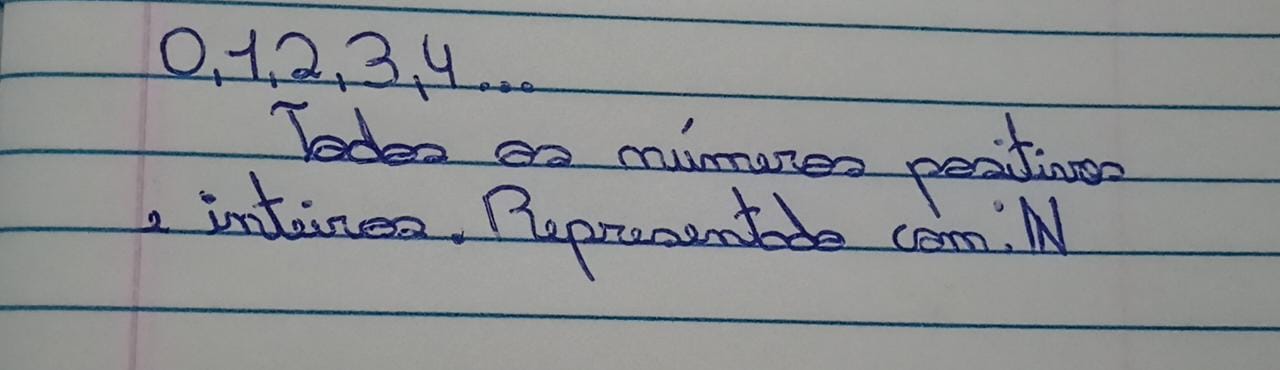 0,1,2,3,4...
Todos os números positivos
e inteiros. Representado com: IN